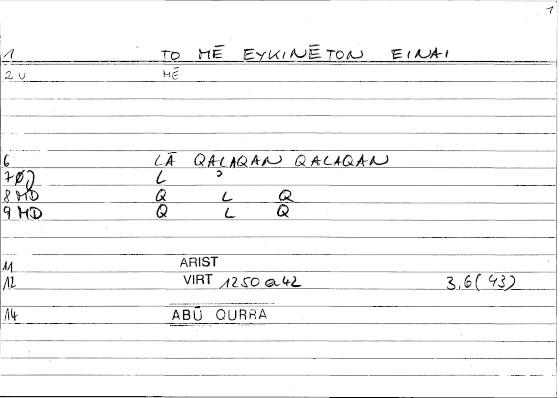 1
1 TO MĒ EYKINĒTON EINAI
2 U MĒ
6 LĀ QALAQAN QALAQAN
7 ØJ L ʾ
8 MD Q L Q
9 MD Q L Q
11 ARIST
12 VIRT 1250 a 42 3,6 (43)
14 ABŪ QURRA